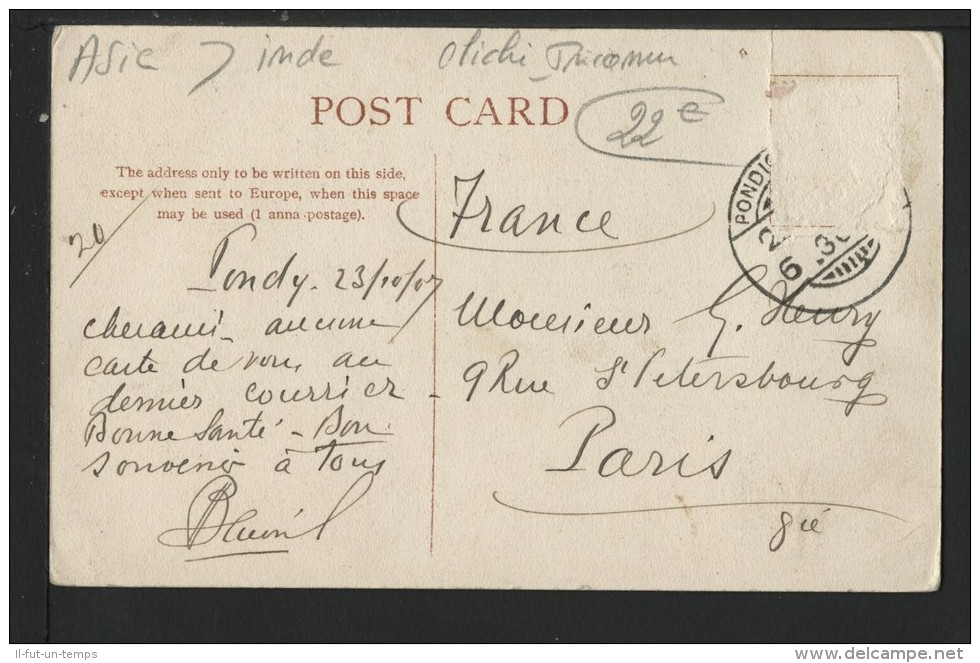 Asie inde
POST CARD
22 €
The address only to be written on this side,
except when sent to Europe, when this space
may be used (1 anna postage).
20
France
PONDIC
Pondy. 23/10/07
cher ami, aucune
carte de vous au
dernier courrier.
Bonne Santé - Bon
souvenir à tous
Monsieur G. Henry
9 Rue St Petersbourg
Paris
Il-fut-un-temps
delcampe.net